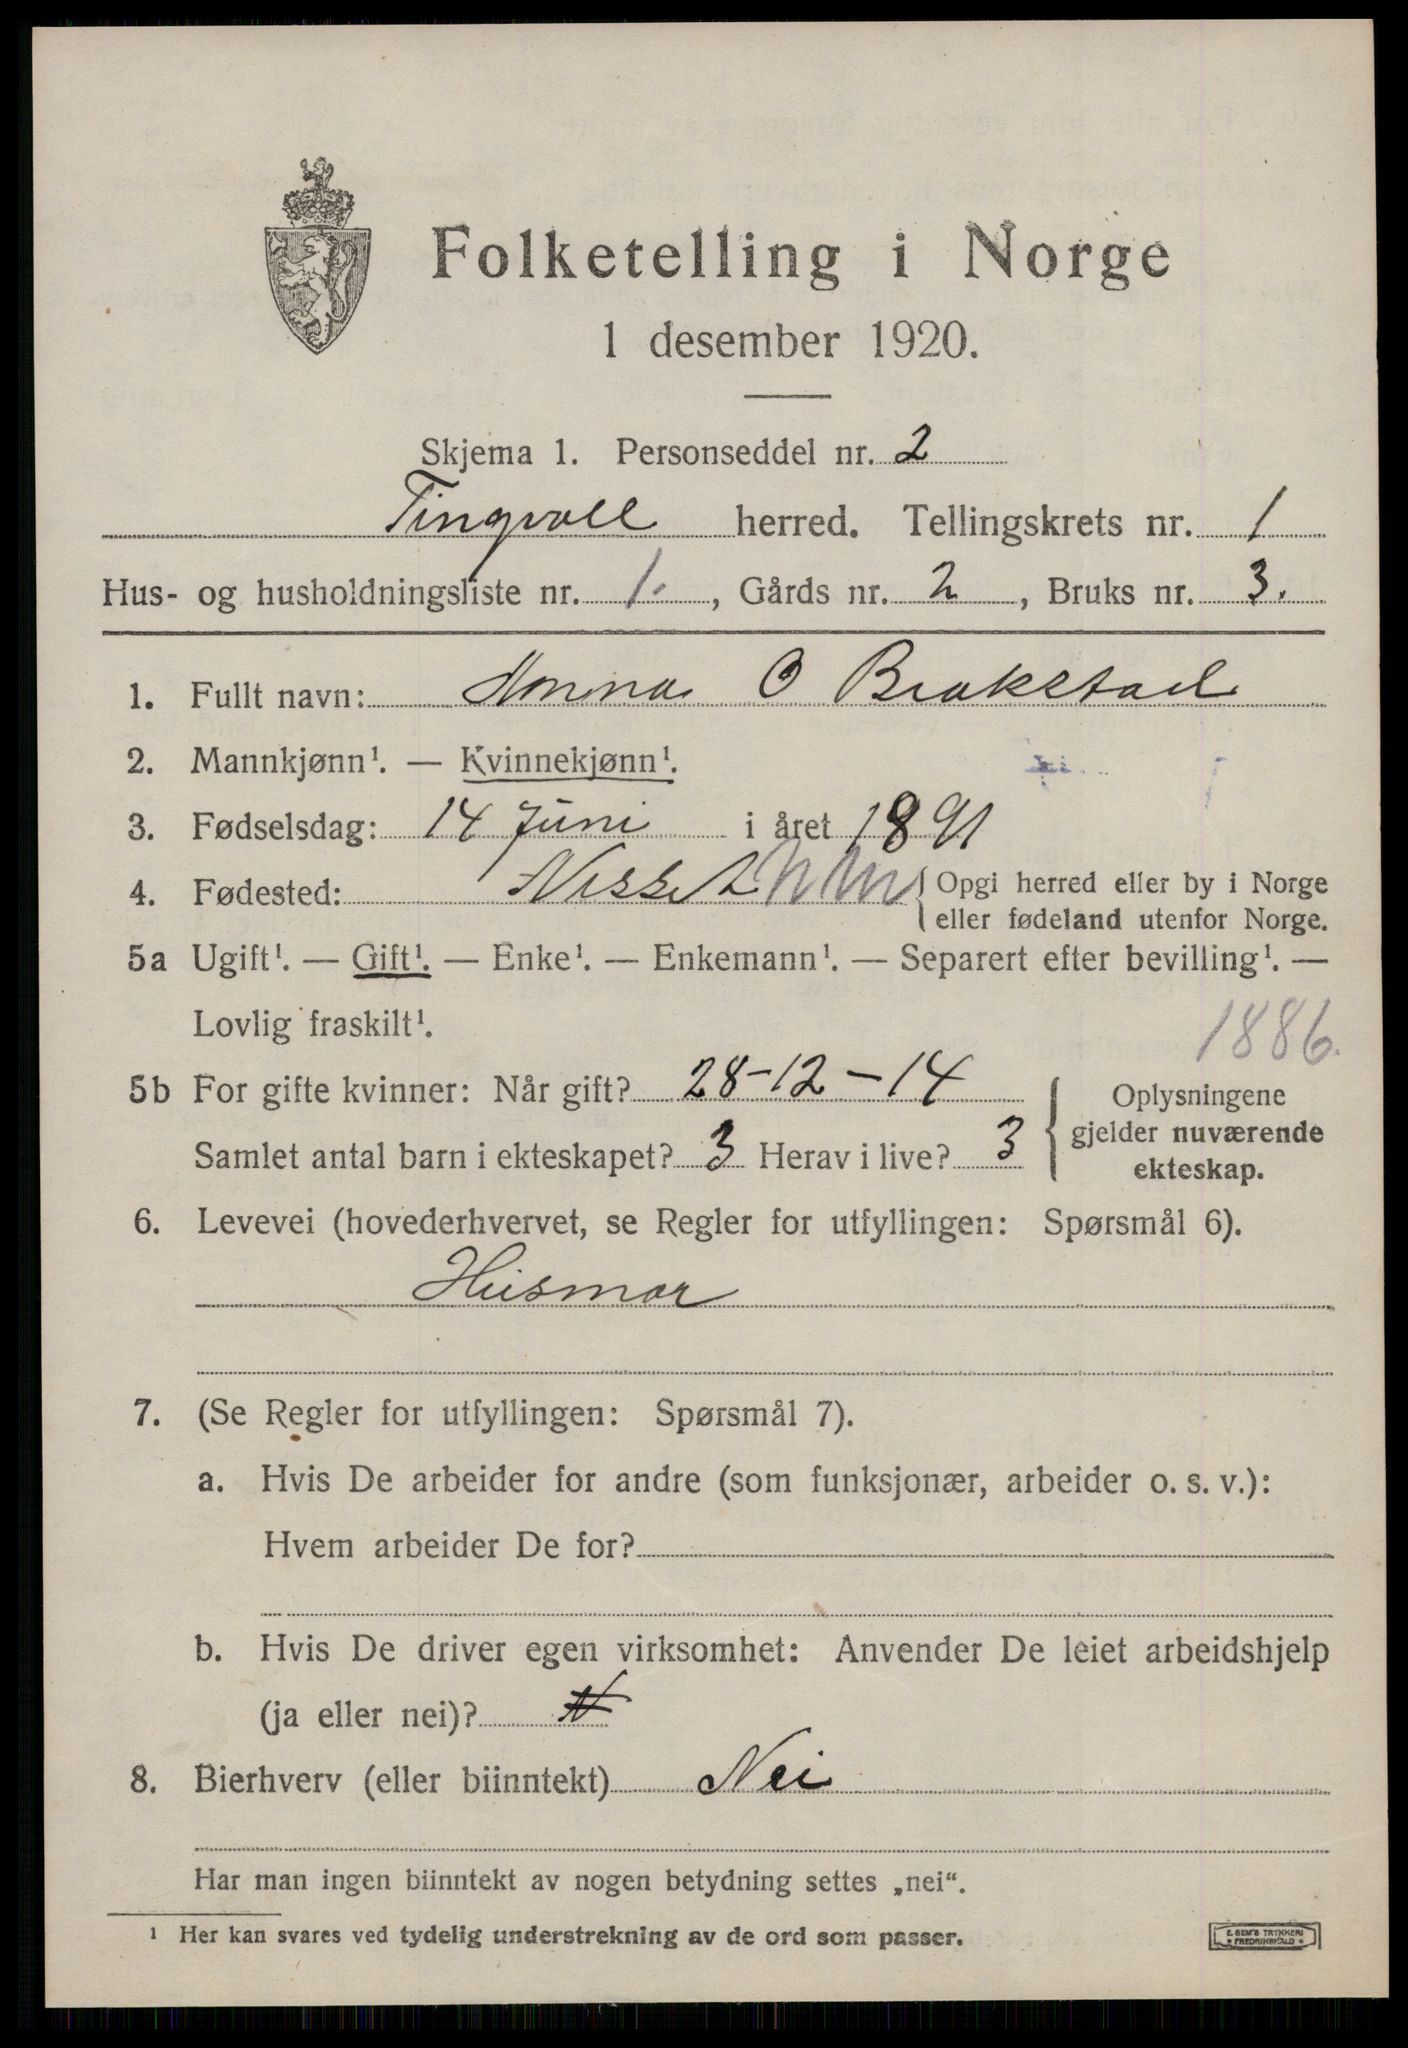 Folketelling i Norge
1 desember 1920.
Skjema 1. Personseddel nr. 2
Tingvoll herred. Tellingskrets nr. 1
Hus- og husholdningsliste nr. 1., Gårds nr. 2, Bruks nr. 3.
1. Fullt navn: Anna O Brakstad
2. Mannkjønn¹. — Kvinnekjønn¹.
3. Fødselsdag: 14 Juni i året 1891
4. Fødested: Nesset { Opgi herred eller by i Norge
eller fødeland utenfor Norge.
5a Ugift¹. — Gift¹. — Enke¹. — Enkemann¹. — Separert efter bevilling¹. —
Lovlig fraskilt¹.
1886.
5b For gifte kvinner: Når gift? 28-12-14
Samlet antal barn i ekteskapet? 3 Herav i live? 3
{ Oplysningene
gjelder nuværende
ekteskap.
6. Levevei (hovederhvervet, se Regler for utfyllingen: Spørsmål 6).
Husmor
7. (Se Regler for utfyllingen: Spørsmål 7).
a. Hvis De arbeider for andre (som funksjonær, arbeider o. s. v.):
Hvem arbeider De for?
b. Hvis De driver egen virksomhet: Anvender De leiet arbeidshjelp
(ja eller nei)? N
8. Bierhverv (eller biinntekt) Nei
Har man ingen biinntekt av nogen betydning settes „nei“.
¹ Her kan svares ved tydelig understrekning av de ord som passer.
E. SEM'S TRYKKERI
FREDRIKSHALD